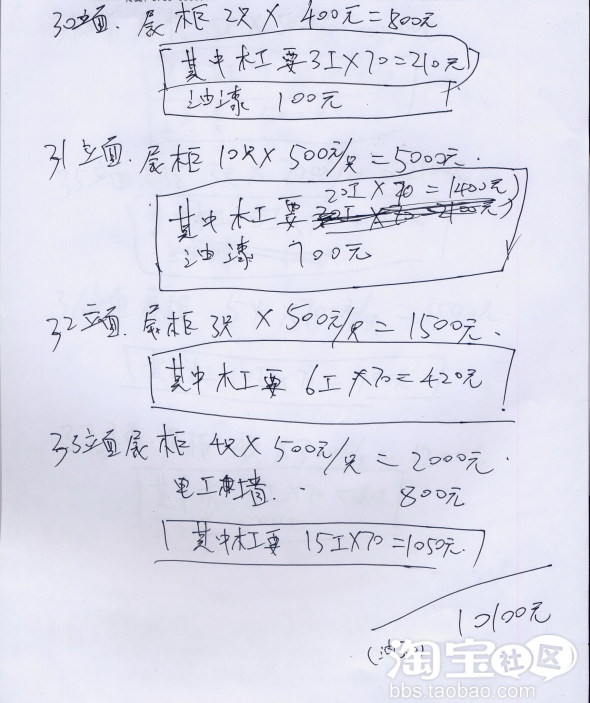 30立面. 展柜 2只 × 400元=800元
其中木工要3工×70=210元
油漆 100元
31立面. 展柜 10只× 500元/只=5000元.
20工×70=1400元
其中木工要
油漆 700元
32立面. 展柜 3只 ×500元/只=1500元.
其中木工要 6工×70=420元
33立面展柜 4只× 500元/只=2000元.
电工 墙. 800元
其中木工要 15工×70=1050元.
10100元
淘宝社区
bbs.taobao.com